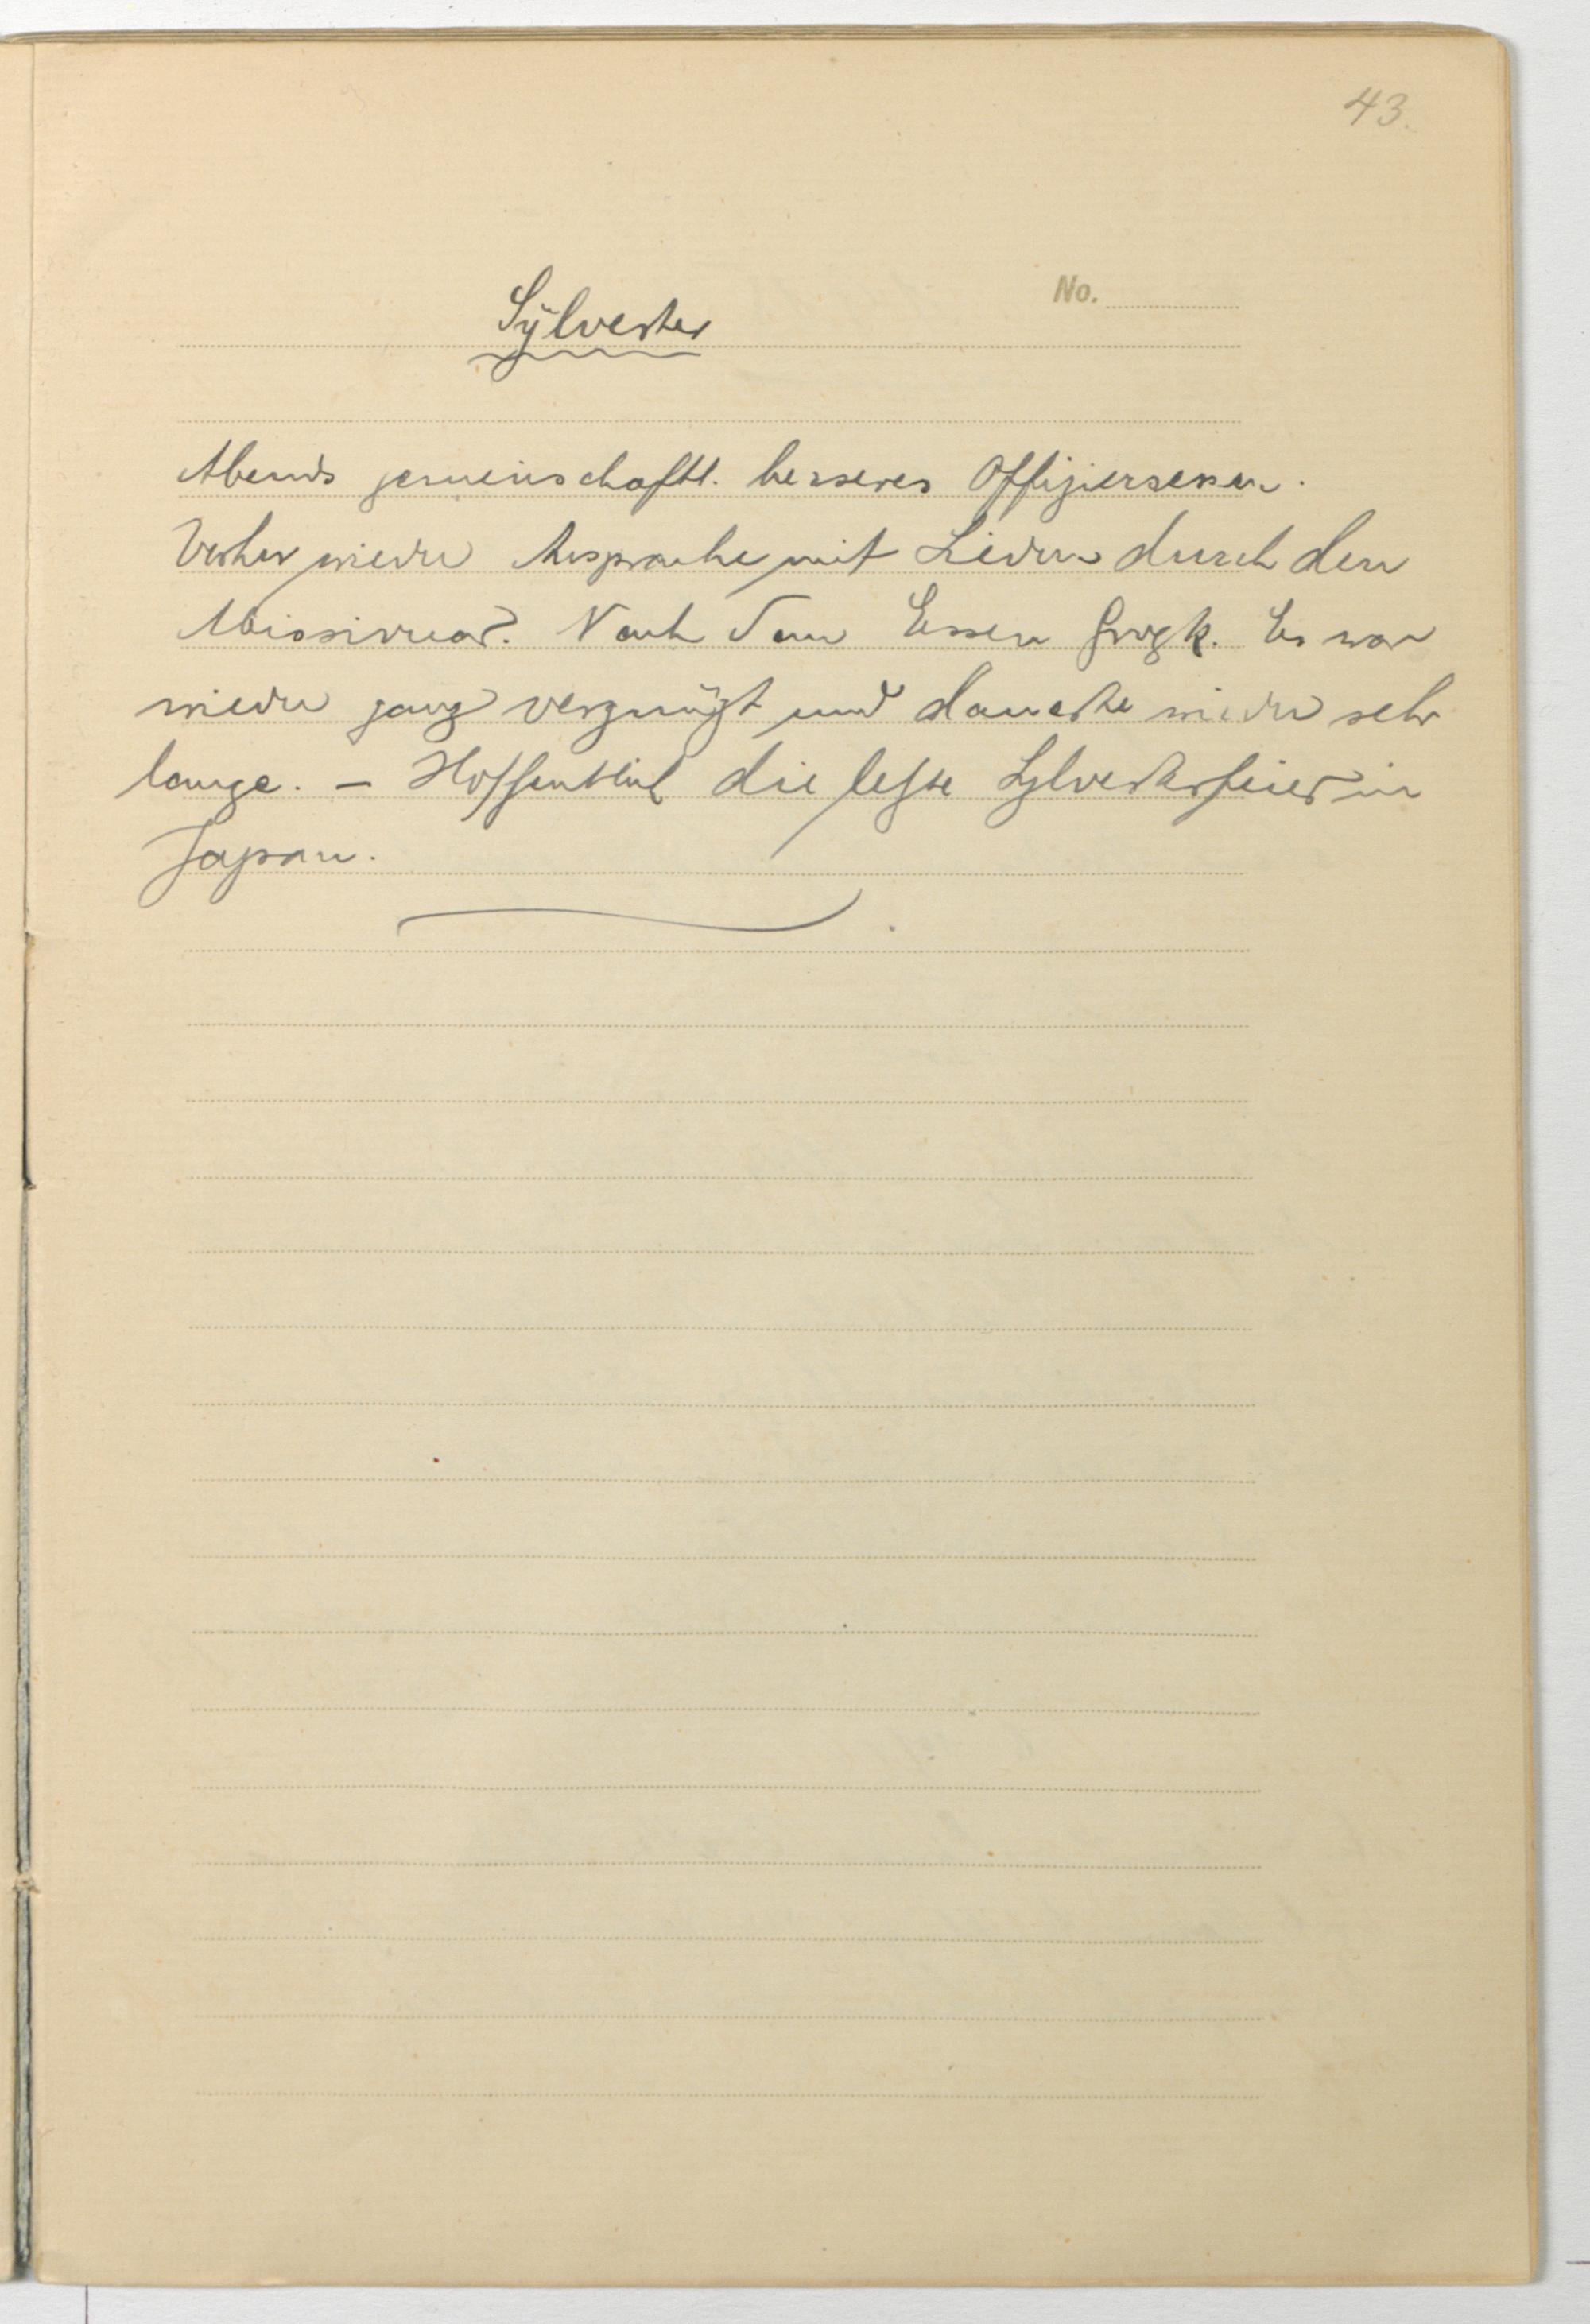 43.
No.
Sylvester
Abends gemeinschaftl. besseres Offiziersessen.
Vorher wieder Ansprache mit Liedern durch den
Missionar. Nach dem Essen Grogk. Es war
wieder ganz vergnügt und dauerte wieder sehr
lange. – Hoffentlich die letzte Sylvesterfeier in
Japan.